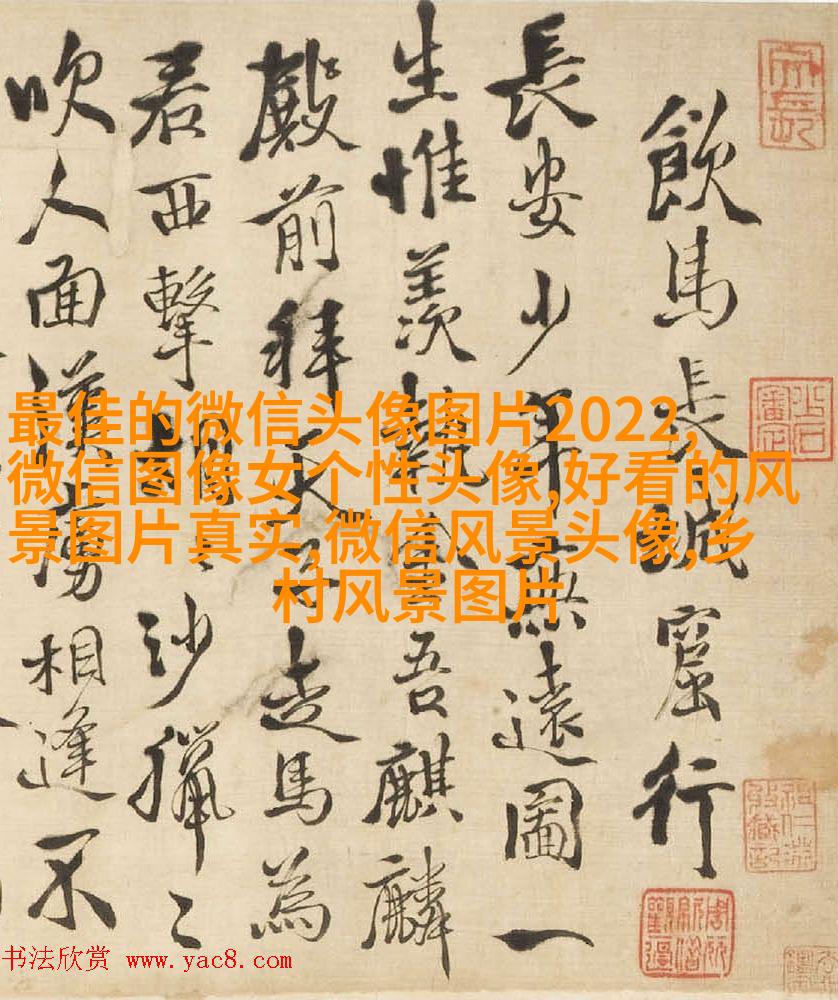 飲馬長城窟行
長安少年無遠圖一
生惟羨執金吾麒麟
殿前拜天子走馬為
君西擊胡〻沙獵〻
吹人面漢虜相逢不
最佳的微信头像图片2022,
微信图像女个性头像,好看的风
景图片真实,微信风景头像,乡
村风景图片
书法欣赏 www.yac8.com